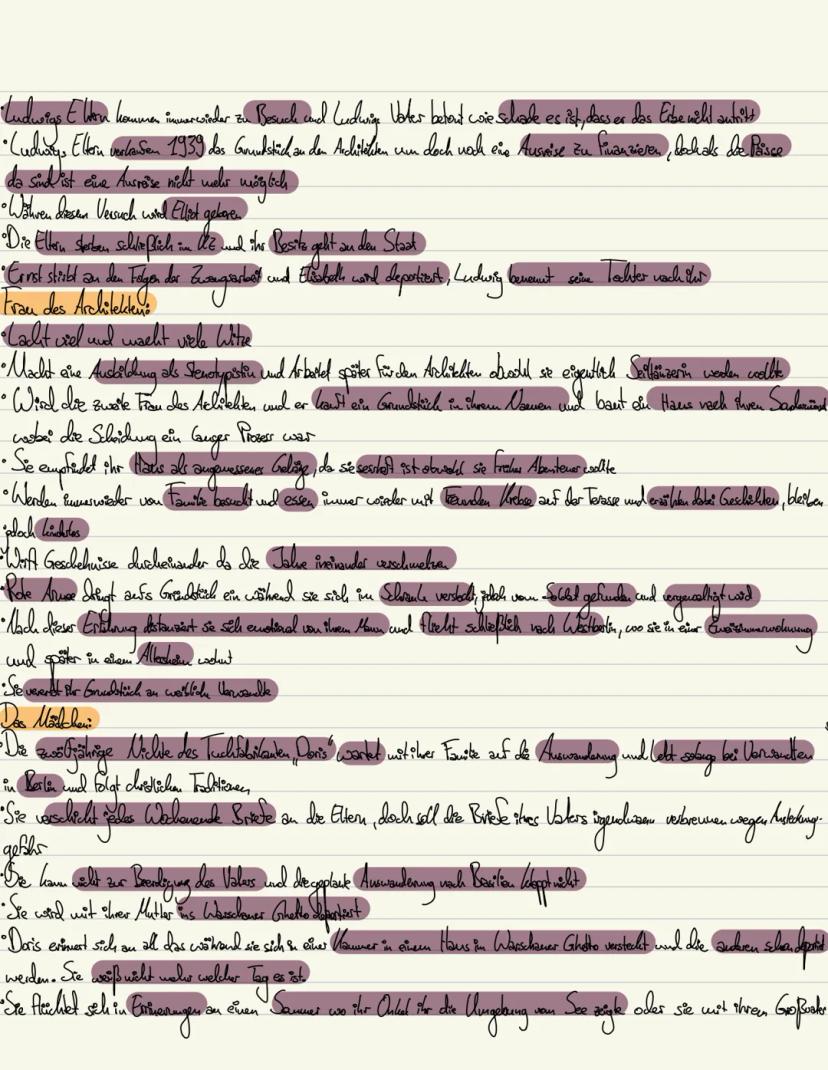 ·Ludwigs Eltern kommen immer wieder zu Besuch und Ludwigs Vater betont wie schade es ist, dass er das Erbe nicht antritt
·Ludwigs Eltern verkaufen 1939 das Grundstück an den Architekten um doch noch eine Ausreise zu finanzieren, doch als die Pässe
da sind ist eine Ausreise nicht mehr möglich
·Währen diesem Versuch wird Elliot geboren
·Die Eltern sterben schließlich im KZ und ihr Besitz geht an den Staat
·Ernst stirbt an den Folgen der Zwangsarbeit und Elisabeth wird deportiert, Ludwig benennt seine Tochter nach ihr
Frau des Architekten:
·Lacht viel und macht viele Witze
·Macht eine Ausbildung als Stenotypistin und Arbeitet später für den Architekten obwohl sie eigentlich Seiltänzerin werden wollte
·Wird die zweite Frau des Achitekten und er kauft ein Grundstück in ihrem Namen und baut ein Haus nach ihren
wobei die Scheidung ein langer Prozess war
·Sie empfindet ihr Haus als angemessenes, da sie sesshaft ist obwohl sie früher Abenteuer wollte
·Werden immer wieder von Familie besucht und essen immer wieder mit Freunden Krebse auf der Terasse und erzählen dabei Geschichten, bleiben
jedoch kinderlos
·Wirft Geschehnisse durcheinander da die Jahre ineinander verschmelzen
·Rote Armee dringt aufs Grundstück ein während sie sich im Schrank versteckt, jedoch vom Soldat gefunden und vergewaltigt wird
·Nach dieser Erfahrung distanziert sie sich emotional von ihrem Mann und flieht schließlich nach Westberlin, wo sie in einer Zweizimmerwohnung
und später in einem Altersheim wohnt
·Sie vererbt ihr Grundstück an weibliche Verwandte
Das Mädchen:
·Die zwölfjährige Nichte des Tuchfabrikanten „Doris" wartet mit ihrer Familie auf die Auswanderung und lebt solang bei Verwandten
in Berlin und folgt christlichen Traditionen
·Sie verschickt jedes Wochenende Briefe an die Eltern, doch soll die Briefe ihres Vaters irgendwann verbrennen wegen Ansteckungs-
gefahr
·Sie kann nicht zur Beerdigung des Vaters und die geplante Auswanderung nach Brasilien klappt nicht
·Sie wird mit ihrer Mutter ins Warschauer Ghetto deportiert
·Doris erinnert sich an all das während sie sich in einer Kammer in einem Haus im Warschauer Ghetto versteckt und die anderen schon deportiert
werden. Sie weiß nicht mehr welcher Tag es ist.
·Sie flüchtet sich in Erinnerungen an einen Sommer wo ihr Onkel ihr die Umgebung vom See zeigte oder sie mit ihrem Großvater